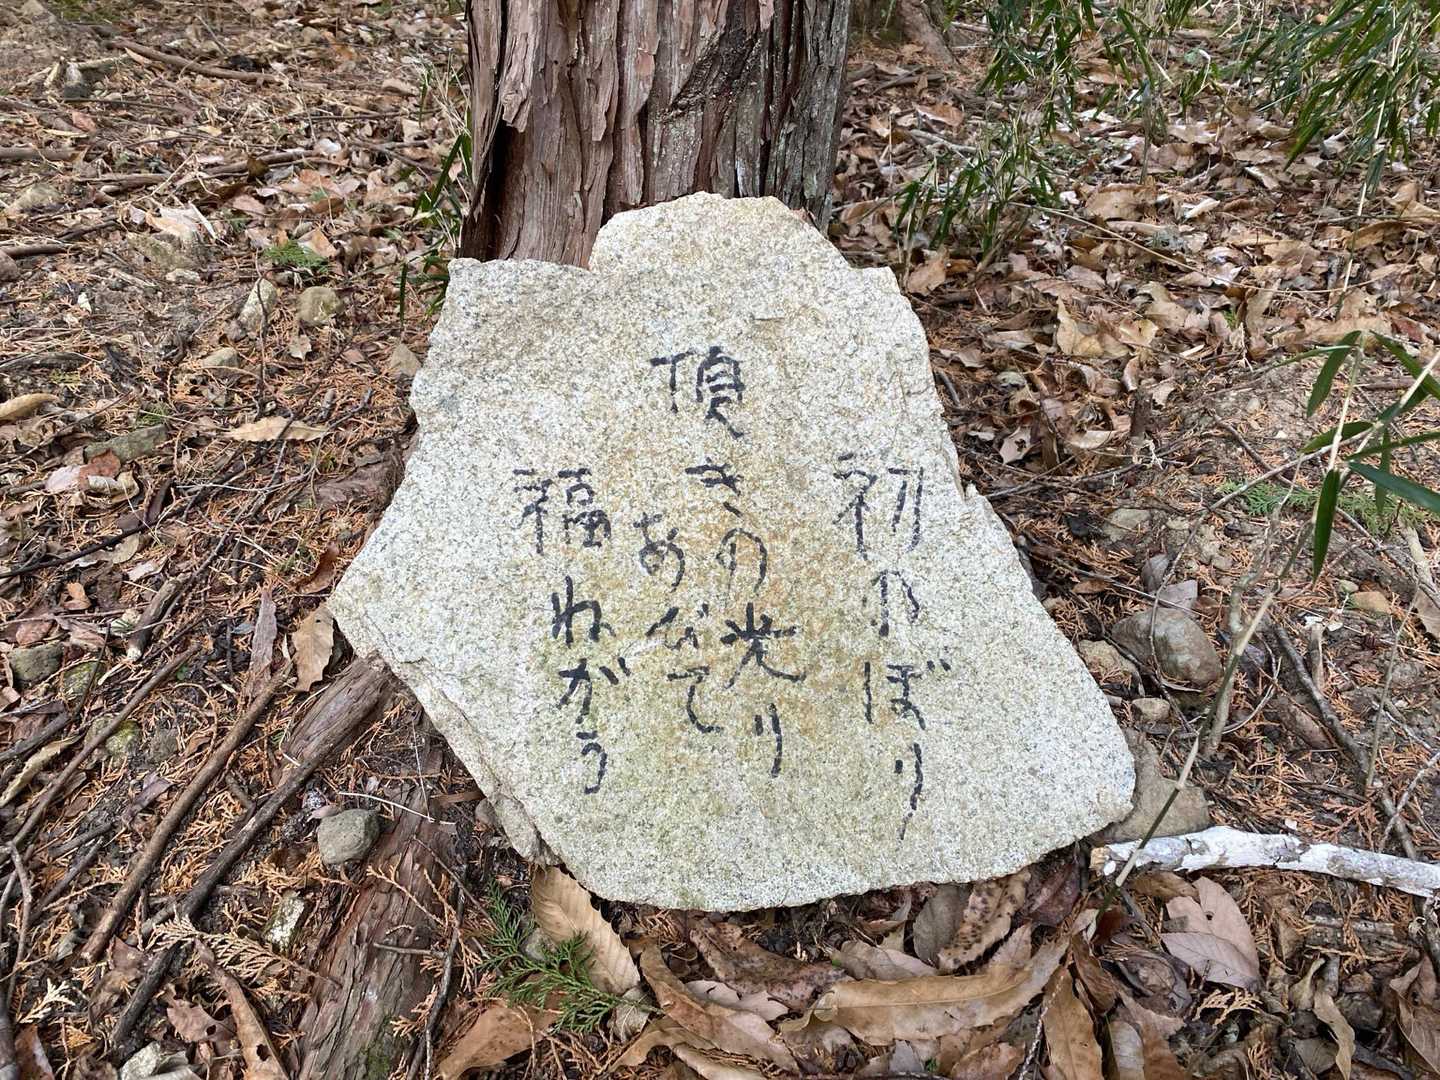 初乃ぼり
頂きの光り
あびて
福ねがう